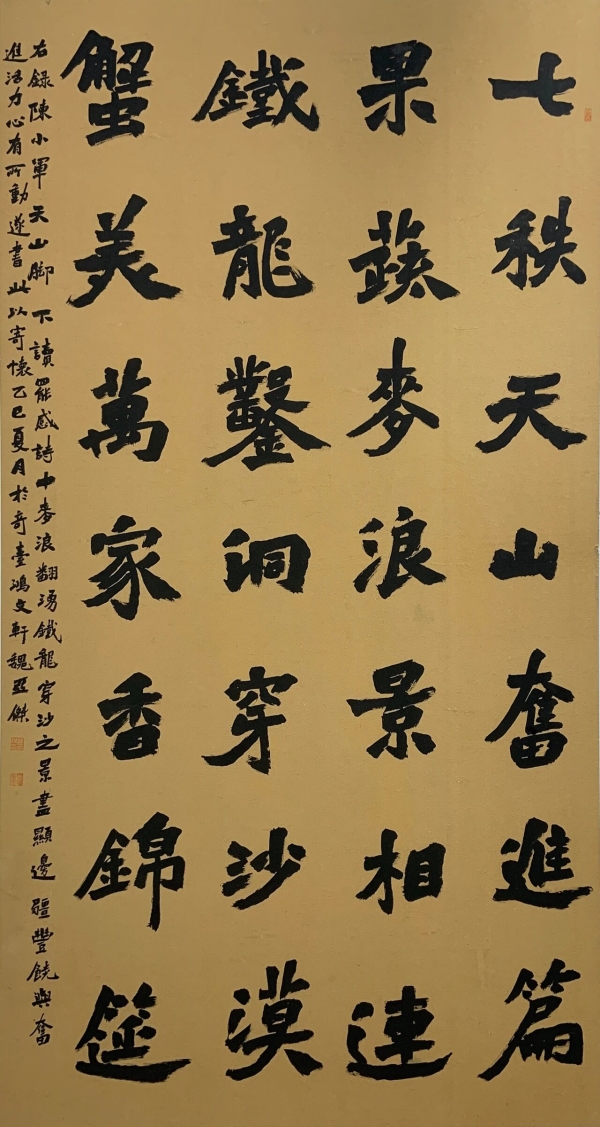 七秩天山奮進篇
果蔬麥浪景相連
鐵龍鑿洞穿沙漠
蟹美萬家香錦筵
右録陳小軍天山脚下讀罷感詩中麥浪翻湧鐵龍穿沙之景盡顯邊疆豐饒與奮
進活力心有所動遂書此以寄懷乙巳夏月於奇臺鴻文軒魏亞傑